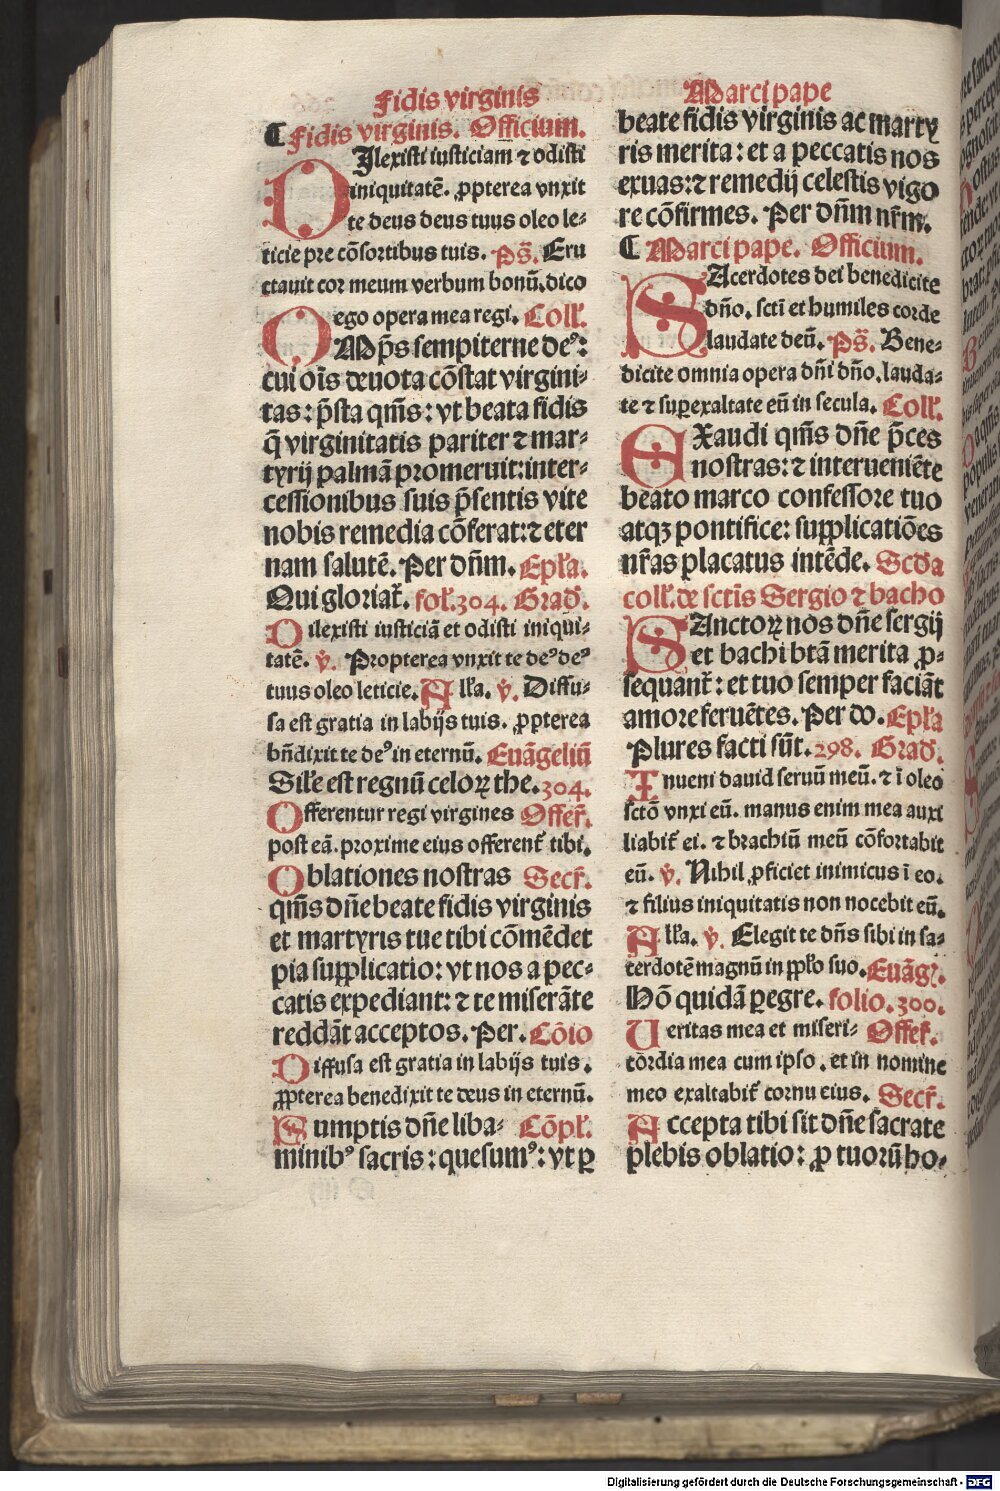 Fidis virginis
¶ Fidis virginis. Officium.
DIlexisti iusticiam ⁊ odisti
iniquitatē. ꝓpterea vnxit
te deus deus tuus oleo le⸗
ticie pre cōsortibus tuis. Ps̄. Eru
ctauit cor meum verbum bonū. dico
ego opera mea regi. Coll̄.
OMp̄s sempiterne deꝰ:
cui oīs deuota cōstat virgini⸗
tas: p̄sta qm̄s: vt beata fidis
q̄ virginitatis pariter ⁊ mar⸗
tyrij palmā promeruit: inter⸗
cessionibus suis p̄sentis vite
nobis remedia cōferat: ⁊ eter
nam salutē. Per dn̄m. Ep̄la.
Qui gloriat̄. fol̄. 304. Grad̄.
Dilexisti iusticiā et odisti iniqui⸗
tatē. v̄. Propterea vnxit te deꝰ deꝰ
tuus oleo leticie. All̄a. v̄. Diffu⸗
sa est gratia in labijs tuis. ꝓpterea
bn̄dixit te deꝰ in eternū. Euāgeliū
Sil̄e est regnū celoꝝ the. 304.
Offerentur regi virgines Offer̄.
post eā. proxime eius offerent̄ tibi.
Oblationes nostras Secr̄.
qm̄s dn̄e beate fidis virginis
et martyris tue tibi cōmēdet
pia supplicatio: vt nos a pec⸗
catis expediant: ⁊ te miserāte
reddāt acceptos. Per. Cōio
Diffusa est gratia in labijs tuis.
ꝓpterea benedixit te deus in eternū.
Sumptis dn̄e liba⸗ Cōpl̄.
minibꝰ sacris: quesumꝰ: vt ꝑ
Marci pape
beate fidis virginis ac martꝝ
ris merita: et a peccatis nos
exuas: ⁊ remedij celestis vigo
re cōfirmes. Per dn̄m nr̄m.
¶ Marci pape. Officium.
SAcerdotes dei benedicite
dn̄o. sct̄i et humiles corde
laudate deū. Ps̄. Bene⸗
dicite omnia opera dn̄i dn̄o. lauda⸗
te ⁊ suꝑexaltate eū in secula. Coll̄.
EXaudi qm̄s dn̄e p̄ces
nostras: ⁊ interueniēte
beato marco confessore tuo
atqꝫ pontifice: supplicatiōes
nr̄as placatus intēde. Scd̄a
coll̄. de sct̄is Sergio ⁊ bacho
SAnctoꝝ nos dn̄e sergij
et bachi btā merita ꝓ⸗
sequant̄: et tuo semper faciāt
amore feruētes. Per do. Ep̄la
Plures facti sūt. 298. Grad̄.
Inueni dauid seruū meū. ⁊ ī oleo
sctō vnxi eū. manus enim mea auxi
liabit̄ ei. ⁊ brachiū meū cōfortabit
eū. v̄. Nihil ꝓficiet inimicus ī eo.
⁊ filius iniquitatis non nocebit eū.
All̄a. v̄. Elegit te dn̄s sibi in sa⸗
cerdotē magnū in pp̄lo suo. Euāḡ.
Hō quidā ꝑegre. folio. 300.
Ueritas mea et miseri⸗ Offer̄.
cordia mea cum ipso. et in nomine
meo exaltabit̄ cornu eius. Secr̄.
Accepta tibi sit dn̄e sacrate
plebis oblatio: ꝓ tuorū ho⸗
Digitalisierung gefördert durch die Deutsche Forschungsgemeinschaft - DFG